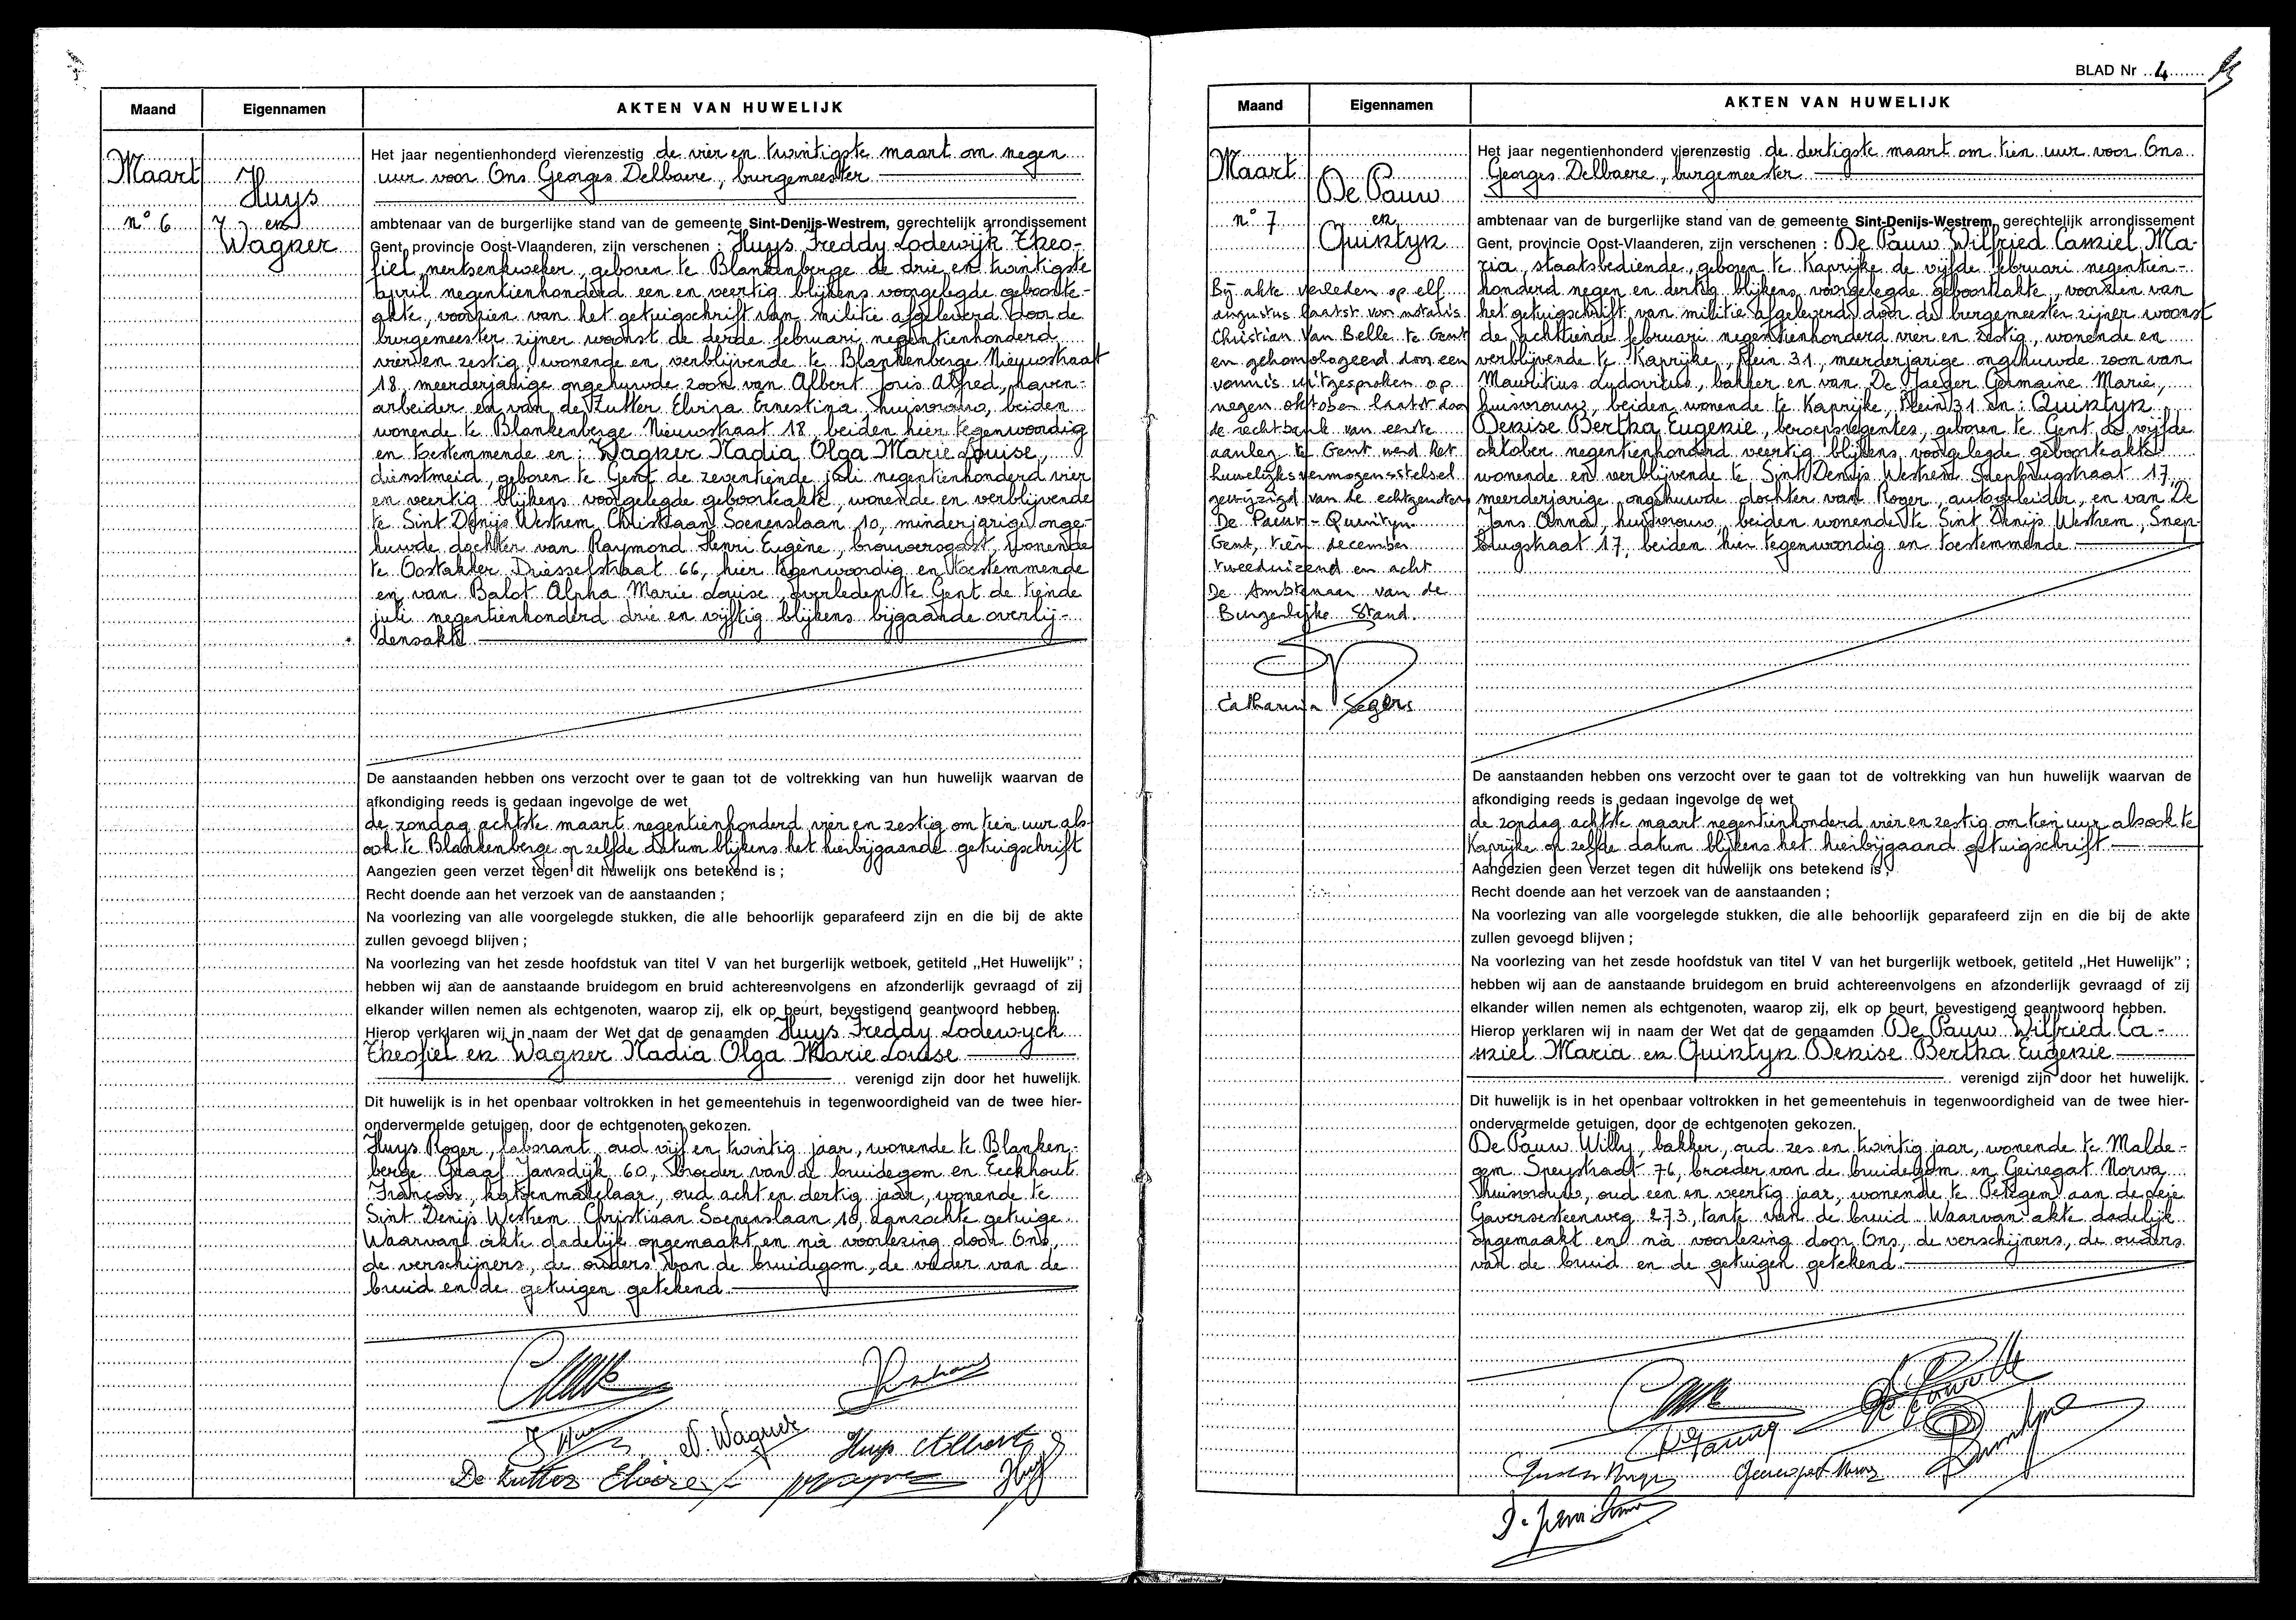 Maand Eigennamen AKTEN VAN HUWELIJK
Maart
n° 6
Huys
en
Wagner
Het jaar negentienhonderd vierenzestig de vier en twintigste maart om negen
uur voor Ons Georges Delbaere, burgemeester
ambtenaar van de burgerlijke stand van de gemeente Sint-Denijs-Westrem, gerechtelijk arrondissement
Gent, provincie Oost-Vlaanderen, zijn verschenen : Huys Freddy Lodewijk Theo-
fiel, nertsenkweker, geboren te Blankenberge de drie en twintigste
april negentienhonderd een en veertig blijkens voorgelegde geboorte-
akte, voorzien van het getuigschrift van militie afgeleverd door de
burgemeester zijner woonst de derde februari negentienhonderd
vier en zestig, wonende en verblijvende te Blankenberge Nieuwstraat
18, meerderjarige ongehuwde zoon van Albert Joris Alfred, haven-
arbeider en van de Zutter Elvira Ernestina, huisvrouw, beiden
wonende te Blankenberge Nieuwstraat 18, beiden hier tegenwoordig
en toestemmende en : Wagner Nadia Olga Marie Louise,
dienstmeid, geboren te Gent de zeventiende juli negentienhonderd vier
en veertig blijkens voorgelegde geboorteakte, wonende en verblijvende
te Sint Denijs Westrem Christiaan Soenenslaan 10, minderjarige onge-
huwde dochter van Raymond Henri Eugène, brouwersgast, wonende
te Oostakker Driesselstraat 66, hier tegenwoordig en toestemmende
en van Balot Alpha Marie Louise, overleden te Gent de tiende
juli negentienhonderd drie en vijftig blijkens bijgaande overlij-
densakte
De aanstaanden hebben ons verzocht over te gaan tot de voltrekking van hun huwelijk waarvan de
afkondiging reeds is gedaan ingevolge de wet
de zondag achtste maart negentienhonderd vier en zestig om tien uur als
ook te Blankenberge op zelfde datum blijkens het hierbijgaande getuigschrift
Aangezien geen verzet tegen dit huwelijk ons betekend is ;
Recht doende aan het verzoek van de aanstaanden ;
Na voorlezing van alle voorgelegde stukken, die alle behoorlijk geparafeerd zijn en die bij de akte
zullen gevoegd blijven ;
Na voorlezing van het zesde hoofdstuk van titel V van het burgerlijk wetboek, getiteld „Het Huwelijk” ;
hebben wij aan de aanstaande bruidegom en bruid achtereenvolgens en afzonderlijk gevraagd of zij
elkander willen nemen als echtgenoten, waarop zij, elk op beurt, bevestigend geantwoord hebben.
Hierop verklaren wij in naam der Wet dat de genaamden Huys Freddy Lodewyck
Theofiel en Wagner Nadia Olga Marie Louise
verenigd zijn door het huwelijk.
Dit huwelijk is in het openbaar voltrokken in het gemeentehuis in tegenwoordigheid van de twee hier-
ondervermelde getuigen, door de echtgenoten gekozen.
Huys Roger, laborant, oud vijf en twintig jaar, wonende te Blanken-
berge Graaf Jansdijk 60, broeder van de bruidegom en Eeckhout
François, katoenmakelaar, oud acht en dertig jaar, wonende te
Sint Denijs Westrem Christiaan Soenenslaan 10, aanzochte getuige.
Waarvan akte dadelijk opgemaakt en na voorlezing door Ons,
de verschijners, de ouders van de bruidegom, de vader van de
bruid en de getuigen getekend
N. Wagner
Huys Albert
De Zutter Elvire
BLAD Nr 4
Maand Eigennamen AKTEN VAN HUWELIJK
Maart
n° 7
De Pauw
en
Quintyn
Bij akte verleden op elf
augustus laatst van notaris
Christian Van Belle te Gent
en gehomologeerd door een
vonnis uitgesproken op
negen oktober laatst door
de rechtbank van eerste
aanleg te Gent werd het
huwelijksvermogensstelsel
gewijzigd van de echtgenoten
De Pauw - Quintyn.
Gent, tien december
tweeduizend en acht
De Ambtenaar van de
Burgerlijke Stand.
Catharina Segers
Het jaar negentienhonderd vierenzestig de dertigste maart om tien uur voor Ons
Georges Delbaere, burgemeester
ambtenaar van de burgerlijke stand van de gemeente Sint-Denijs-Westrem, gerechtelijk arrondissement
Gent, provincie Oost-Vlaanderen, zijn verschenen : De Pauw Wilfried Camiel Ma-
ria, staatsbediende, geboren te Kaprijke de vijfde februari negentien-
honderd negen en dertig blijkens voorgelegde geboorteakte, voorzien van
het getuigschrift van militie afgeleverd door de burgemeester zijner woonst
de achttiende februari negentienhonderd vier en zestig, wonende en
verblijvende te Kaprijke, Plein 31, meerderjarige ongehuwde zoon van
Mauritius Ludovicus, bakker en van De Jaeger Germaine Marie,
huisvrouw, beiden wonende te Kaprijke, Plein 31 en : Quintyn
Denise Bertha Eugenie, beroepsregentes, geboren te Gent de vijfde
oktober negentienhonderd veertig blijkens voorgelegde geboorteakte
wonende en verblijvende te Sint Denijs Westrem Snepbrugstraat 17,
meerderjarige ongehuwde dochter van Roger, autogeleider, en van De
Jans Anna, huisvrouw, beiden wonende te Sint Denijs Westrem, Snep-
brugstraat 17, beiden hier tegenwoordig en toestemmende
De aanstaanden hebben ons verzocht over te gaan tot de voltrekking van hun huwelijk waarvan de
afkondiging reeds is gedaan ingevolge de wet
de zondag achtste maart negentienhonderd vier en zestig om tien uur alsook te
Kaprijke op zelfde datum blijkens het hierbijgaand getuigschrift
Aangezien geen verzet tegen dit huwelijk ons betekend is ;
Recht doende aan het verzoek van de aanstaanden ;
Na voorlezing van alle voorgelegde stukken, die alle behoorlijk geparafeerd zijn en die bij de akte
zullen gevoegd blijven ;
Na voorlezing van het zesde hoofdstuk van titel V van het burgerlijk wetboek, getiteld „Het Huwelijk” ;
hebben wij aan de aanstaande bruidegom en bruid achtereenvolgens en afzonderlijk gevraagd of zij
elkander willen nemen als echtgenoten, waarop zij, elk op beurt, bevestigend geantwoord hebben.
Hierop verklaren wij in naam der Wet dat de genaamden De Pauw Wilfried Ca-
miel Maria en Quintyn Denise Bertha Eugenie
verenigd zijn door het huwelijk.
Dit huwelijk is in het openbaar voltrokken in het gemeentehuis in tegenwoordigheid van de twee hier-
ondervermelde getuigen, door de echtgenoten gekozen.
De Pauw Willy, bakker, oud zes en twintig jaar, wonende te Malde-
gem Speystraat 76, broeder van de bruidegom en Geiregat Norva
huisvrouw, oud een en veertig jaar, wonende te Petegem aan de Leie
Gaversesteenweg 273, tante van de bruid. Waarvan akte dadelijk
opgemaakt en na voorlezing door Ons, de verschijners, de ouders
van de bruid en de getuigen getekend